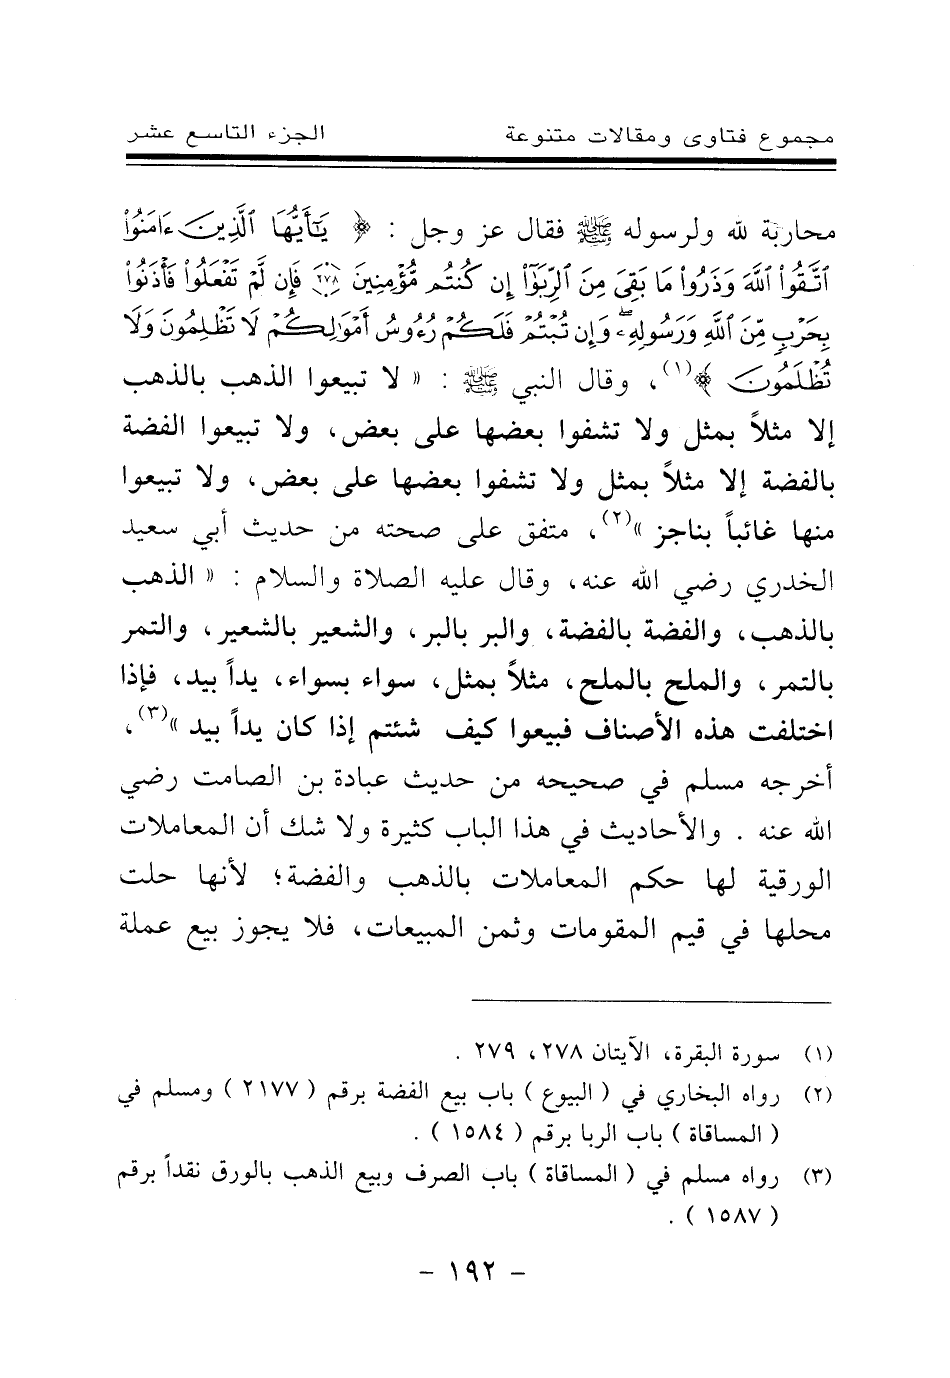 مجموع فتاوى ومقالات متنوعة الجزء التاسع عشر
محاربة لله ولرسوله ﷺ فقال عز وجل : ﴿ يَٰٓأَيُّهَا ٱلَّذِينَ ءَامَنُوا۟
ٱتَّقُوا۟ ٱللَّهَ وَذَرُوا۟ مَا بَقِىَ مِنَ ٱلرِّبَوٰٓا۟ إِن كُنتُم مُّؤْمِنِينَ ٢٧٨ فَإِن لَّمْ تَفْعَلُوا۟ فَأْذَنُوا۟
بِحَرْبٍ مِّنَ ٱللَّهِ وَرَسُولِهِۦ ۖ وَإِن تُبْتُمْ فَلَكُمْ رُءُوسُ أَمْوَٰلِكُمْ لَا تَظْلِمُونَ وَلَا
تُظْلَمُونَ ﴾(١)، وقال النبي ﷺ : « لا تبيعوا الذهب بالذهب
إلا مثلاً بمثل ولا تشفوا بعضها على بعض، ولا تبيعوا الفضة
بالفضة إلا مثلاً بمثل ولا تشفوا بعضها على بعض، ولا تبيعوا
منها غائباً بناجز »(٢)، متفق على صحته من حديث أبي سعيد
الخدري رضي الله عنه، وقال عليه الصلاة والسلام : « الذهب
بالذهب، والفضة بالفضة، والبر بالبر، والشعير بالشعير، والتمر
بالتمر، والملح بالملح، مثلاً بمثل، سواء بسواء، يداً بيد، فإذا
اختلفت هذه الأصناف فبيعوا كيف شئتم إذا كان يداً بيد »(٣)،
أخرجه مسلم في صحيحه من حديث عبادة بن الصامت رضي
الله عنه . والأحاديث في هذا الباب كثيرة ولا شك أن المعاملات
الورقية لها حكم المعاملات بالذهب والفضة؛ لأنها حلت
محلها في قيم المقومات وثمن المبيعات، فلا يجوز بيع عملة
(١) سورة البقرة، الآيتان ٢٧٨، ٢٧٩ .
(٢) رواه البخاري في ( البيوع ) باب بيع الفضة برقم ( ٢١٧٧ ) ومسلم في
( المساقاة ) باب الربا برقم ( ١٥٨٤ ) .
(٣) رواه مسلم في ( المساقاة ) باب الصرف وبيع الذهب بالورق نقداً برقم
( ١٥٨٧ ) .
- ١٩٢ -